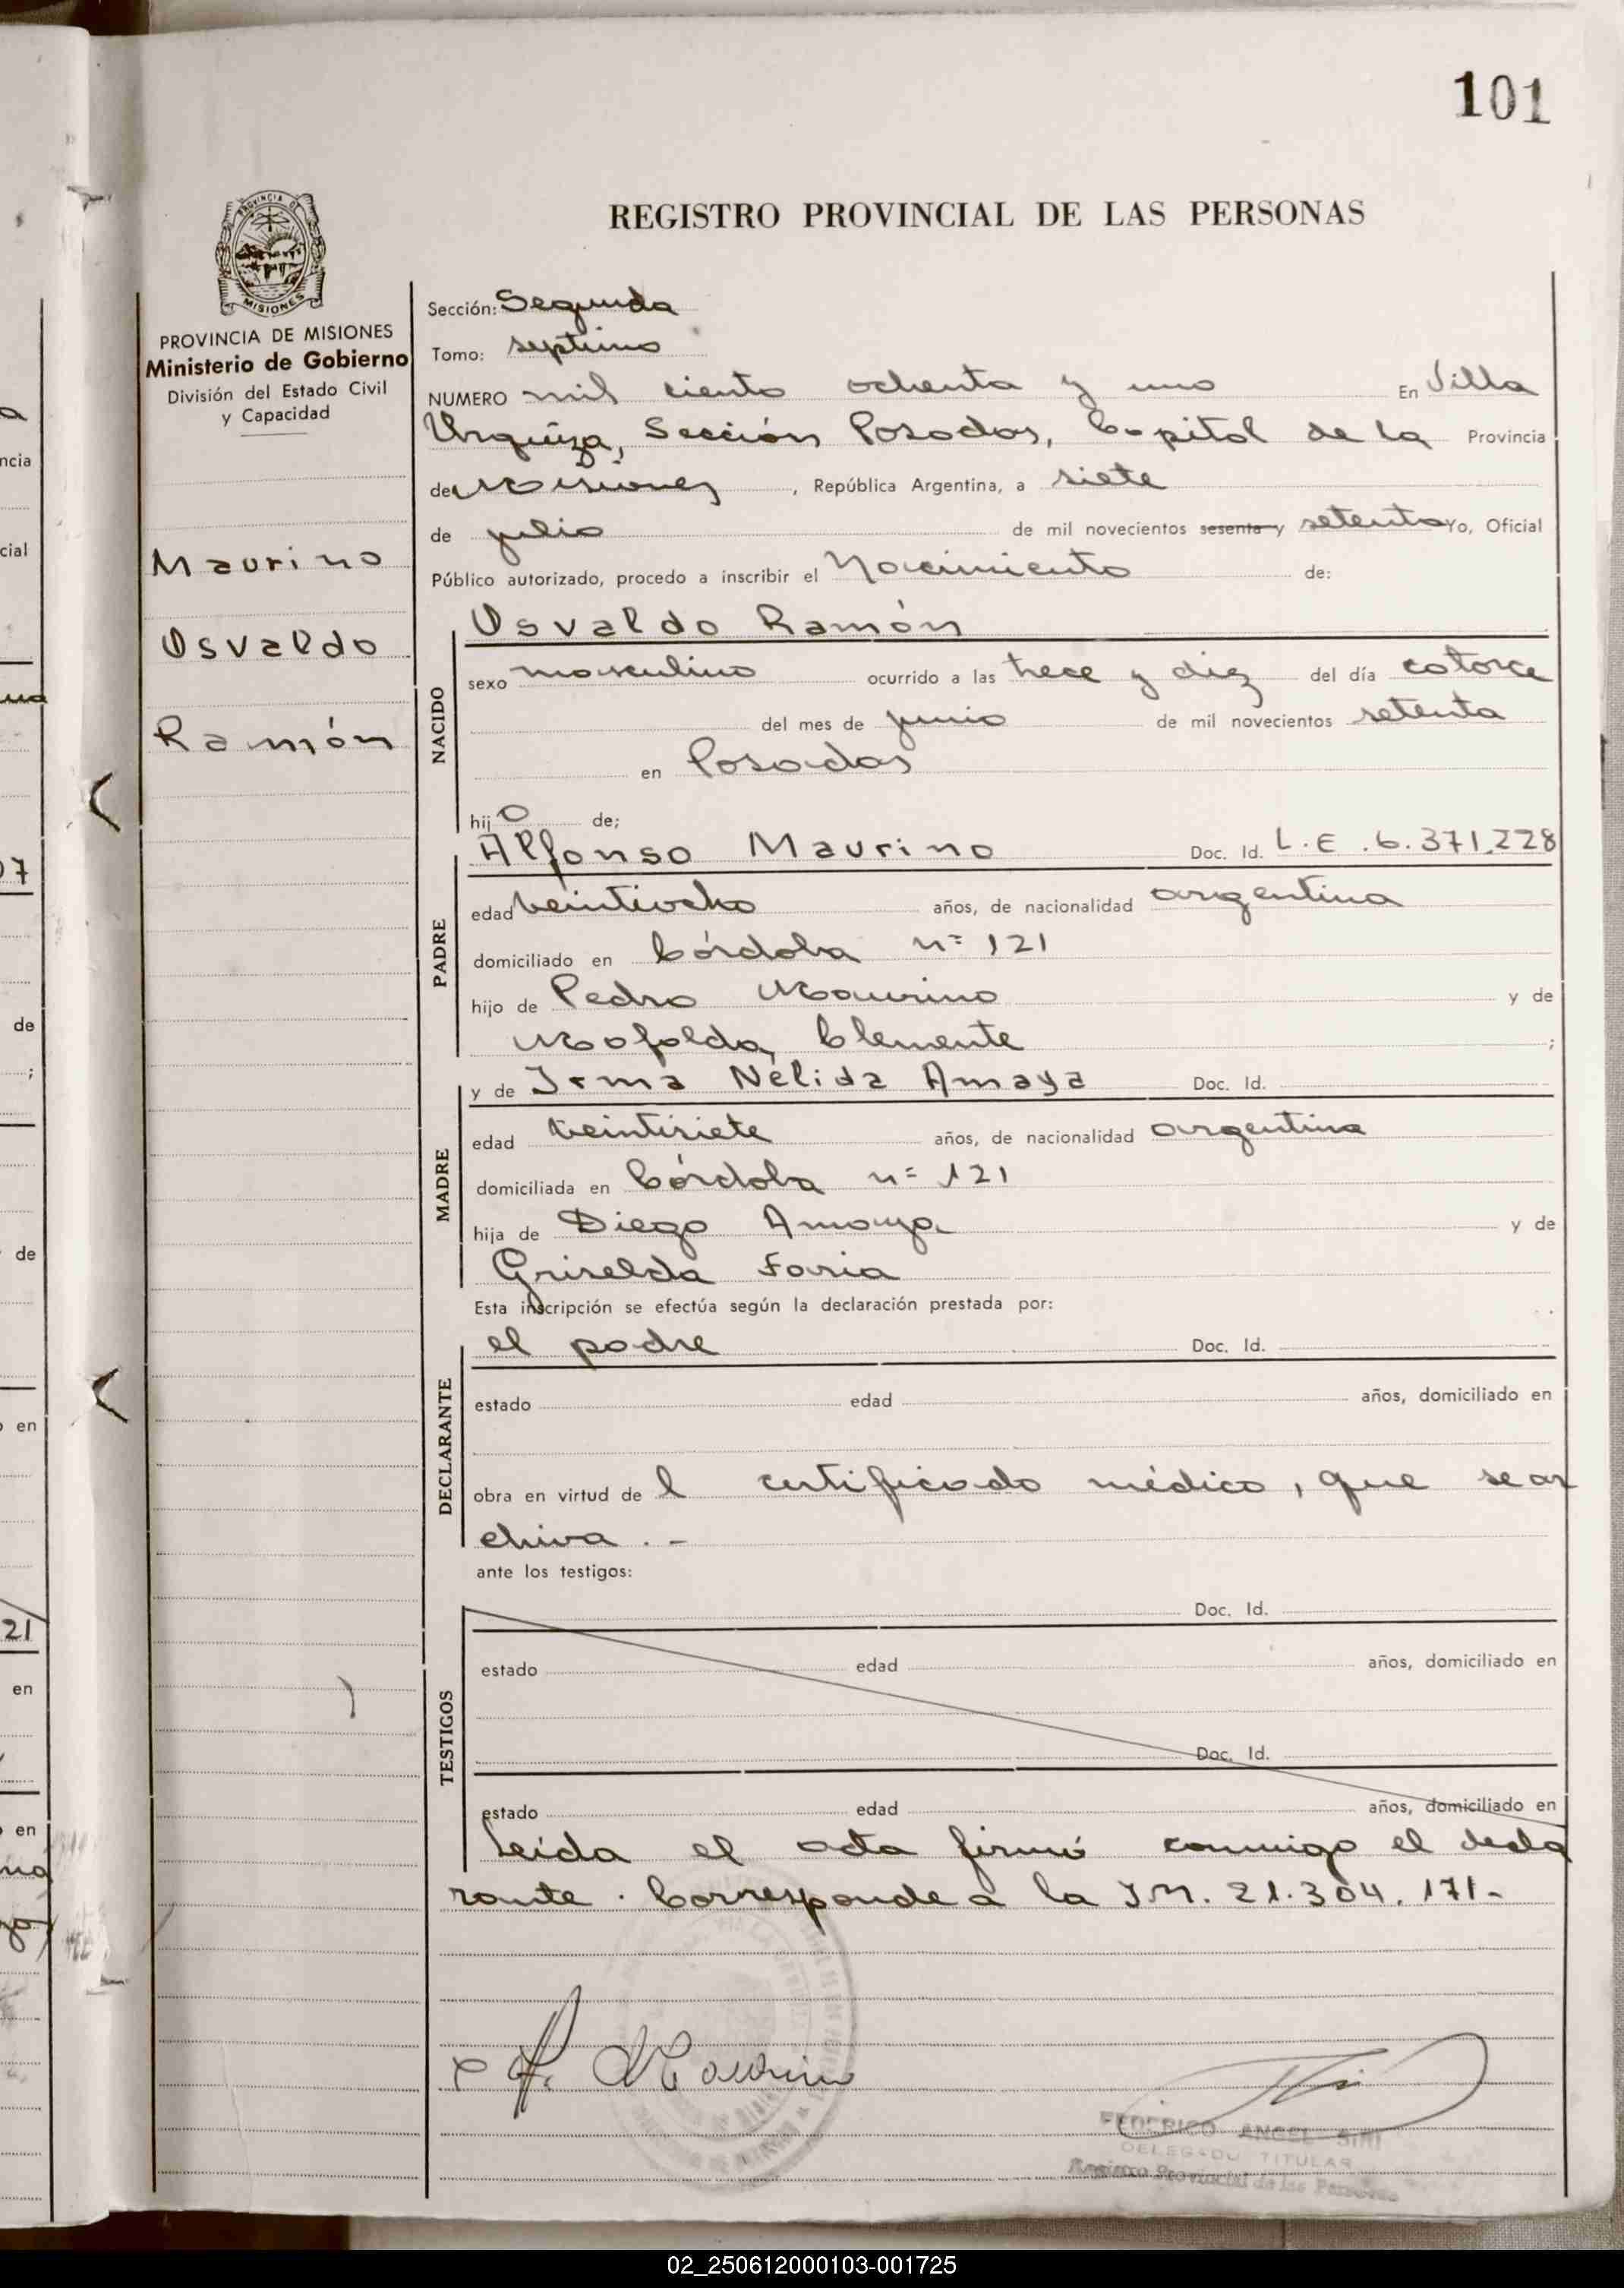 101
REGISTRO PROVINCIAL DE LAS PERSONAS
PROVINCIA DE
MISIONES
PROVINCIA DE MISIONES
Ministerio de Gobierno
División del Estado Civil
y Capacidad
Maurino
Osvaldo
Ramón
Sección: Segunda
Tomo: septimo
NUMERO mil ciento ochenta y uno En Villa
Urquiza, Sección Posadas, Capital de la Provincia
de Misiones, República Argentina, a siete
de julio de mil novecientos sesenta y setenta Yo, Oficial
Público autorizado, procedo a inscribir el Nacimiento de:
Osvaldo Ramón
NACIDO
sexo masculino ocurrido a las trece y diez del día catorce
del mes de junio de mil novecientos setenta
en Posadas
hijo de;
Alfonso Maurino Doc. Id. L.E. 6.371.228
PADRE
edad veintiocho años, de nacionalidad argentina
domiciliado en Córdoba n= 121
hijo de Pedro Maurino y de
Mafalda Clemente ;
y de Irma Nélida Amaya Doc. Id.
MADRE
edad veintisiete años, de nacionalidad argentina
domiciliada en Córdoba n= 121
hija de Diego Amaya y de
Griselda Faria
Esta inscripción se efectúa según la declaración prestada por:
el padre Doc. Id.
DECLARANTE
estado edad años, domiciliado en
obra en virtud de l certificado médico, que se ar
chiva . -
ante los testigos:
Doc. Id.
TESTIGOS
estado edad años, domiciliado en
Doc. Id.
estado edad años, domiciliado en
Leída el acta firmó conmigo el decla
rante . Corresponde a la I.M. 21.304.171-
A. Maurino
FEDERICO ANGEL SIRI
DELEGADO TITULAR
Registro Provincial de las Personas
02_250612000103-001725